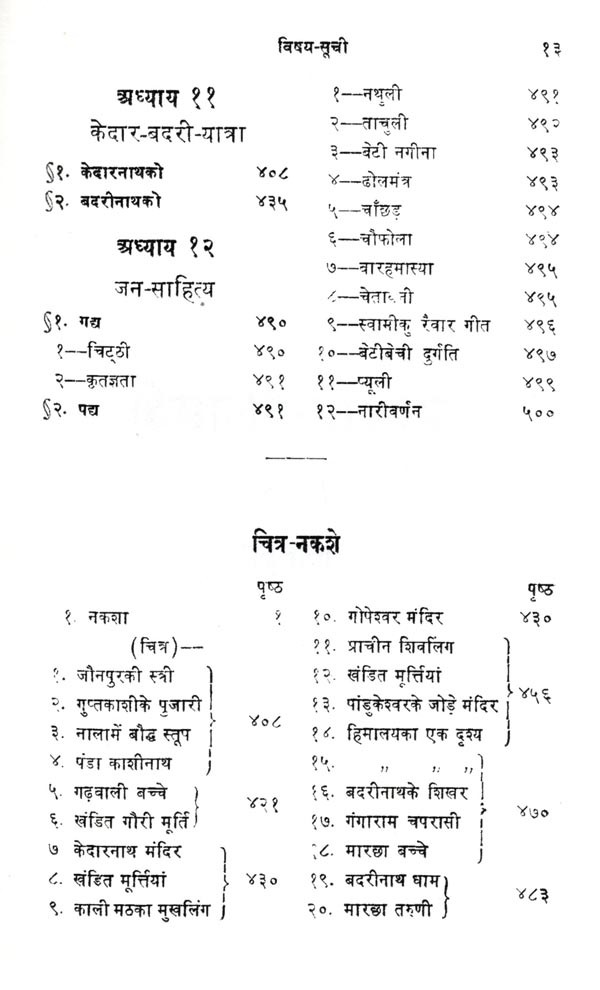 विषय-सूची १३
अध्याय ११
केदार-बदरी-यात्रा
§१. केदारनाथको ४०८
§२. बदरीनाथको ४३५
अध्याय १२
जन-साहित्य
§१. गद्य ४९०
१—चिट्ठी ४९०
२—कृतज्ञता ४९१
§२. पद्य ४९१
१—नथुली ४९१
२—ताचुली ४९२
३—बेटी नगीना ४९३
४—ढोलमंत्र ४९३
५—चाँछड़ ४९४
६—चौफोला ४९४
७—वारहमास्या ४९५
८— ४९५
९—स्वामीकु रैवार गीत ४९६
१०—बेटीबेची दुर्गति ४९७
११—प्यूली ४९९
१२—नारीवर्णन ५००
चित्र-नकशे
पृष्ठ
१. नकशा १
(चित्र)—
१. जौनपुरकी स्त्री
२. गुप्तकाशीके पुजारी
३. नालामें बौद्ध स्तूप ४०८
४. पंडा काशीनाथ
५. गढ़वाली बच्चे
६. खंडित गौरी मूर्ति ४२१
७ केदारनाथ मंदिर
८. खंडित मूर्त्तियां ४३०
९. काली मठका मुखलिंग
पृष्ठ
१०. गोपेश्वर मंदिर ४३०
११. प्राचीन शिवलिंग
१२. खंडित मूर्त्तियां
१३. पांडुकेश्वरके जोड़े मंदिर ४५६
१४. हिमालयका एक दृश्य
१५. ,, ,, ,,
१६. बदरीनाथके शिखर
१७. गंगाराम चपरासी ४७०
१८. मारछा बच्चे
१९. बदरीनाथ धाम
२०. मारछा तरुणी ४८३